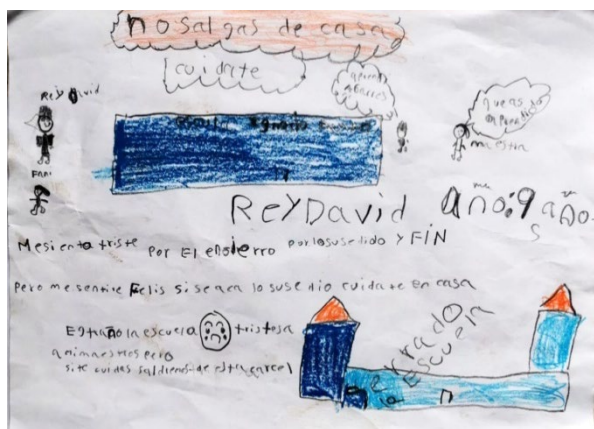 no salgas de casa
cuidate
Rey David
maestra
ReyDavid año:9 año
s
Me siento triste por El encierro por lo susedido y FIN
Pero me sentire Felis si se aca lo susedio cuidate en casa
Estraño la escuela tristesa
a mi maestros pero
si te cuidas saldremos de esta carcel
serrado
la Escuela